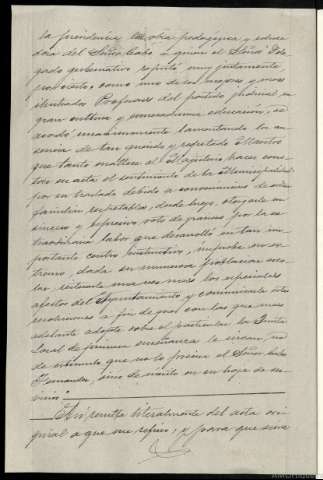 la presidencia la obra pedagógica y educa
dora del Señor Cabo a quien el Señor Dele
gado gubernativo reputó muy justamente
como uno de los mejores y más
ilustrados Profesores del partido judicial, su
gran cultura y esmeradísima educación, se
acordó unánimemente lamentando la au
sencia de tan querido y respetado Maestro
que tanto enaltece al Magisterio, hacer cons
tar en acta el sentimiento de la Municipalidad
por su traslado debido a conveniencias de
familia respetables, desde luego, otorgarle un
sincero y expresivo voto de gracias por la
labor que desarrolló en tan im
portante centro instructivo,
dada su numerosa población esco
lar, reiterarle una vez más los especiales
afectos del Ayuntamiento y comunicarle estas
resoluciones a fin de que con las que más
adelante adopte sobre el particular la Junta
Local de primera enseñanza le sirvan, no
de estímulo que no lo precisa el Señor Cabo
sino de mérito en su hoja de ser
vicios.
Así resulta literalmente del acta ori
ginal a que me refiero; y para que sirva